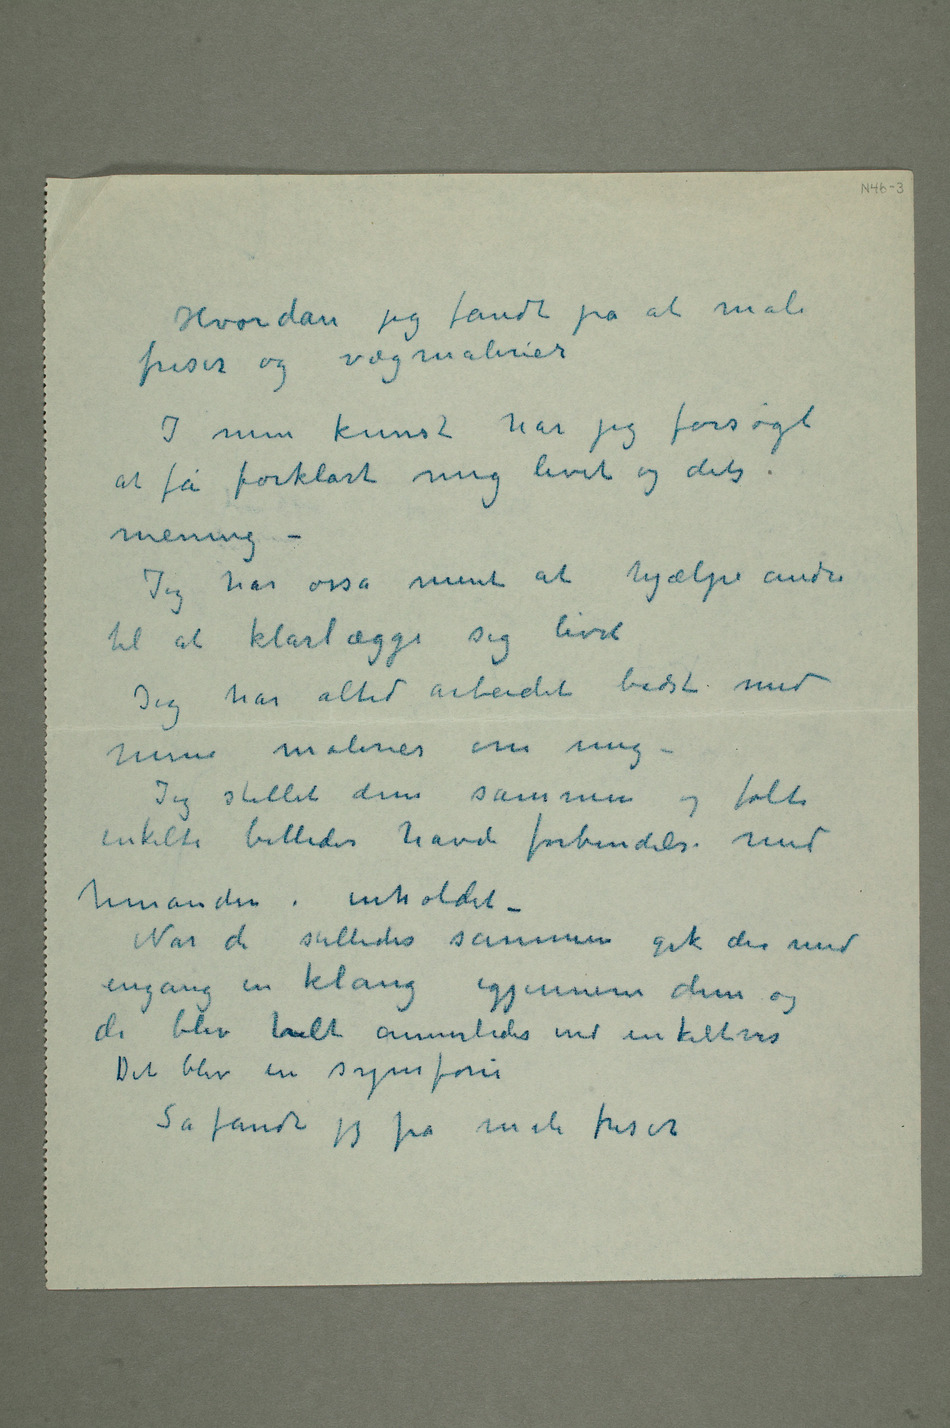 N46-3
Hvordan jeg fandt pa at male
friser og vægmalerier
I min kunst har jeg forsøgt
at få forklart mig livet og dets
mening –
Jeg har ossa ment at hjælpe andre
til at klarlægge sig livet
Jeg har altid arbeidet bedst med
mine malerier om mig –
Jeg stillet dem sammen og følte
enkelte billeder havde forbindelse med
hinanden i inholdet –
Når de stilledes sammen gik der med
engang en klang igjennem dem og
de blev helt anmerledes end enkeltvis
Det blev en symfoni
Sa fandt jeg pa male friser